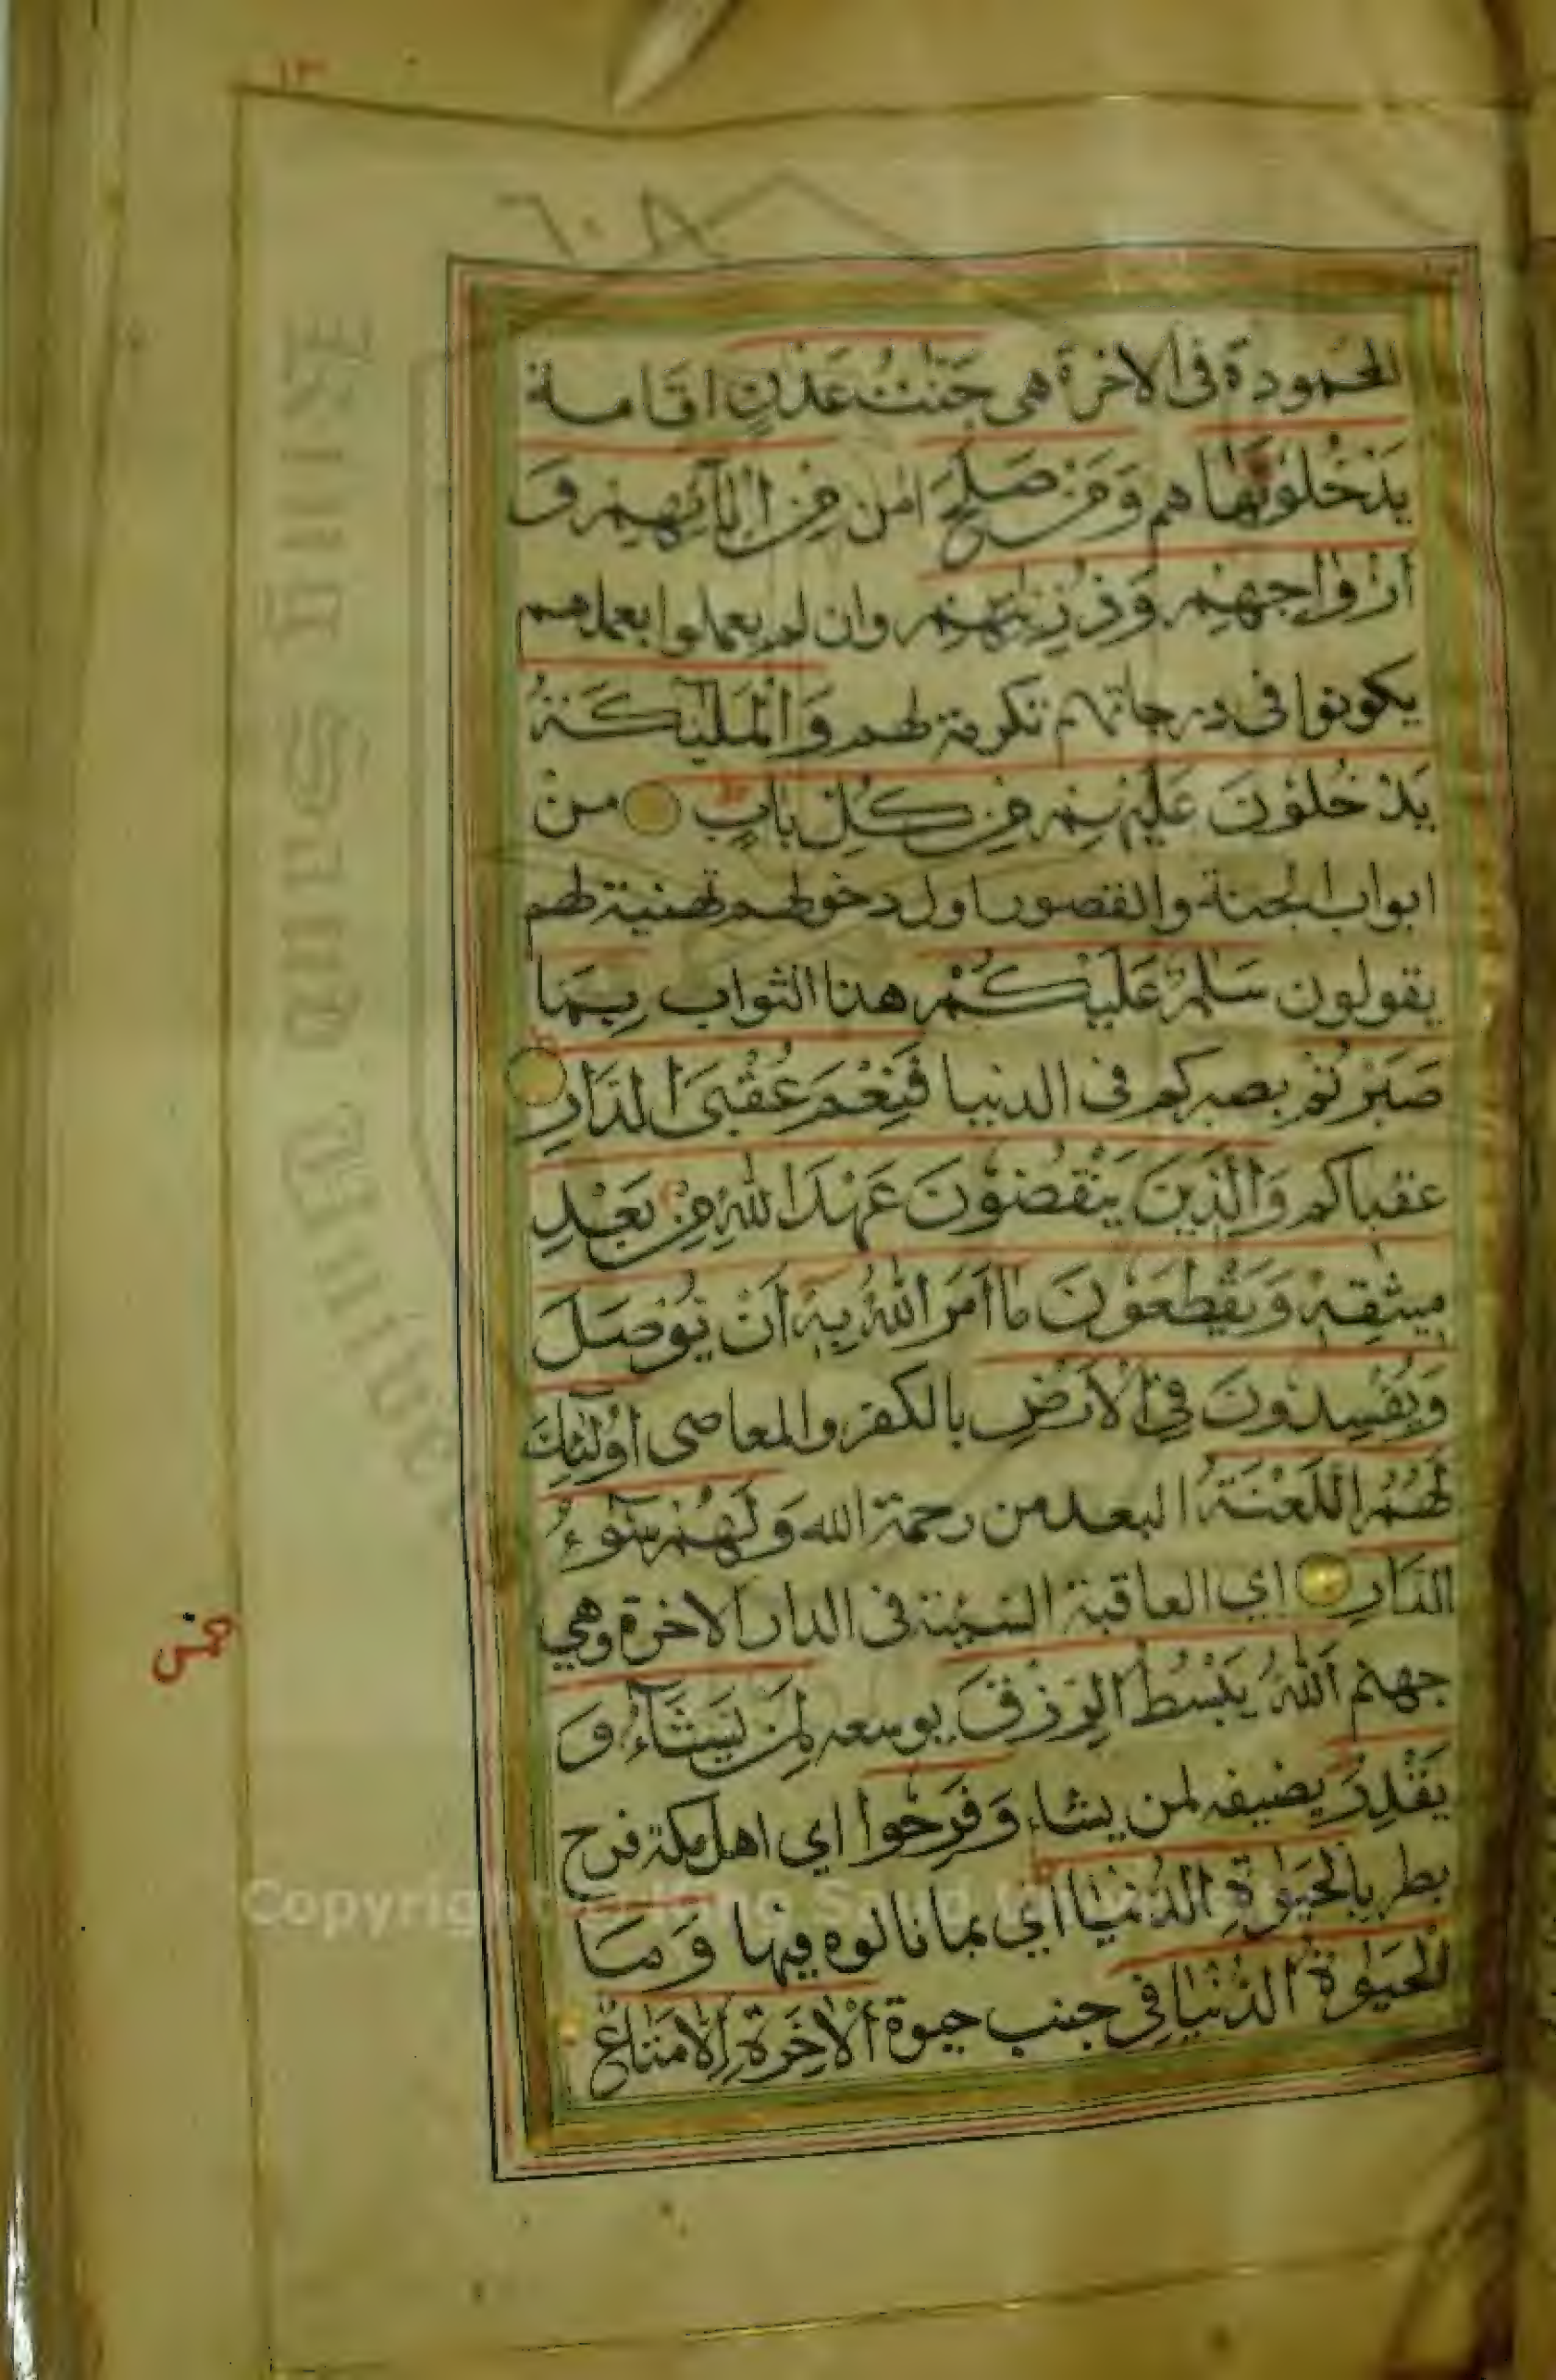 ١٣
المحمودة فى الاخرة هى جَنّٰتُ عَدْنٍ اقامة
يَدْخُلُوْنَهَا هم وَمَنْ صَلَحَ امن مِنْ اٰبَآئِهِمْ وَ
اَزْوَاجِهِمْ وَذُرِّيّٰتِهِمْ وان لم يعملوا بعملهم
يكونوا فى درجاتهم تكرمة لهم وَالْمَلٰٓئِكَةُ
يَدْخُلُوْنَ عَلَيْهِمْ مِنْ كُلِّ بَابٍ من
ابواب الجنة والقصور اول دخولهم تهنية لهم
يقولون سَلٰمٌ عَلَيْكُمْ هذا الثواب بِمَا
صَبَرْتُمْ بصبركم فى الدنيا فَنِعْمَ عُقْبَى الدَّارِ
عقباكم وَالَّذِيْنَ يَنْقُضُوْنَ عَهْدَ اللّٰهِ مِنْ بَعْدِ
مِيْثٰقِهٖ وَيَقْطَعُوْنَ مَا اَمَرَ اللّٰهُ بِهٖٓ اَنْ يُوْصَلَ
وَيُفْسِدُوْنَ فِى الْاَرْضِ بالكفر والمعاصى اُولٰٓئِكَ
لَهُمُ اللَّعْنَةُ البعد من رحمة الله وَلَهُمْ سُوْٓءُ
الدَّارِ اي العاقبة السيئة فى الدار الاخرة وهي
جهنم اَللّٰهُ يَبْسُطُ الرِّزْقَ يوسعه لِمَنْ يَشَآءُ وَ
يَقْدِرُ يضيقه لمن يشاء وَفَرِحُوا اي اهل مكة فرح
بطر بِالْحَيٰوةِ الدُّنْيَا اي بما نالوه فيها وَمَا
الْحَيٰوةُ الدُّنْيَا فِى جنب حيوة الْاٰخِرَةِ اِلَّا مَتَاعٌ
خمس